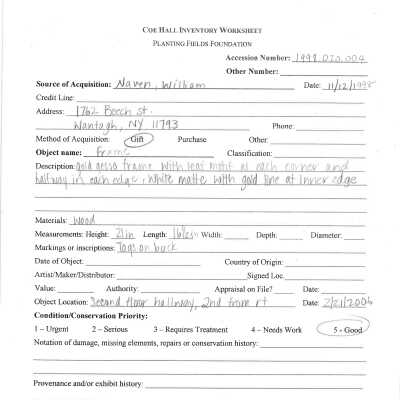 COE HALL INVENTORY WORKSHEET
PLANTING FIELDS FOUNDATION
Accession Number: 1998.020.004
Other Number:
Source of Acquisition: Naven, William Date: 11/12/1998
Credit Line:
Address: 1762 Beech st.
Wantagh, NY 11793 Phone:
Method of Acquisition: Gift Purchase Other:
Object name: Frame Classification:
Description: gold gesso frame with leaf motif at each corner and
halfway in each edge, White matte with gold line at inner edge
Materials: Wood
Measurements: Height: 21in Length: 16 1/2in Width: Depth: Diameter:
Markings or inscriptions: Tags on back
Date of Object: Country of Origin:
Artist/Maker/Distributor: Signed Loc.
Value: Authority: Appraisal on File? Date:
Object Location: Second floor hallway, 2nd from rt Date: 2/21/2006
Condition/Conservation Priority:
1 – Urgent 2 – Serious 3 – Requires Treatment 4 – Needs Work 5 - Good
Notation of damage, missing elements, repairs or conservation history:
Provenance and/or exhibit history: